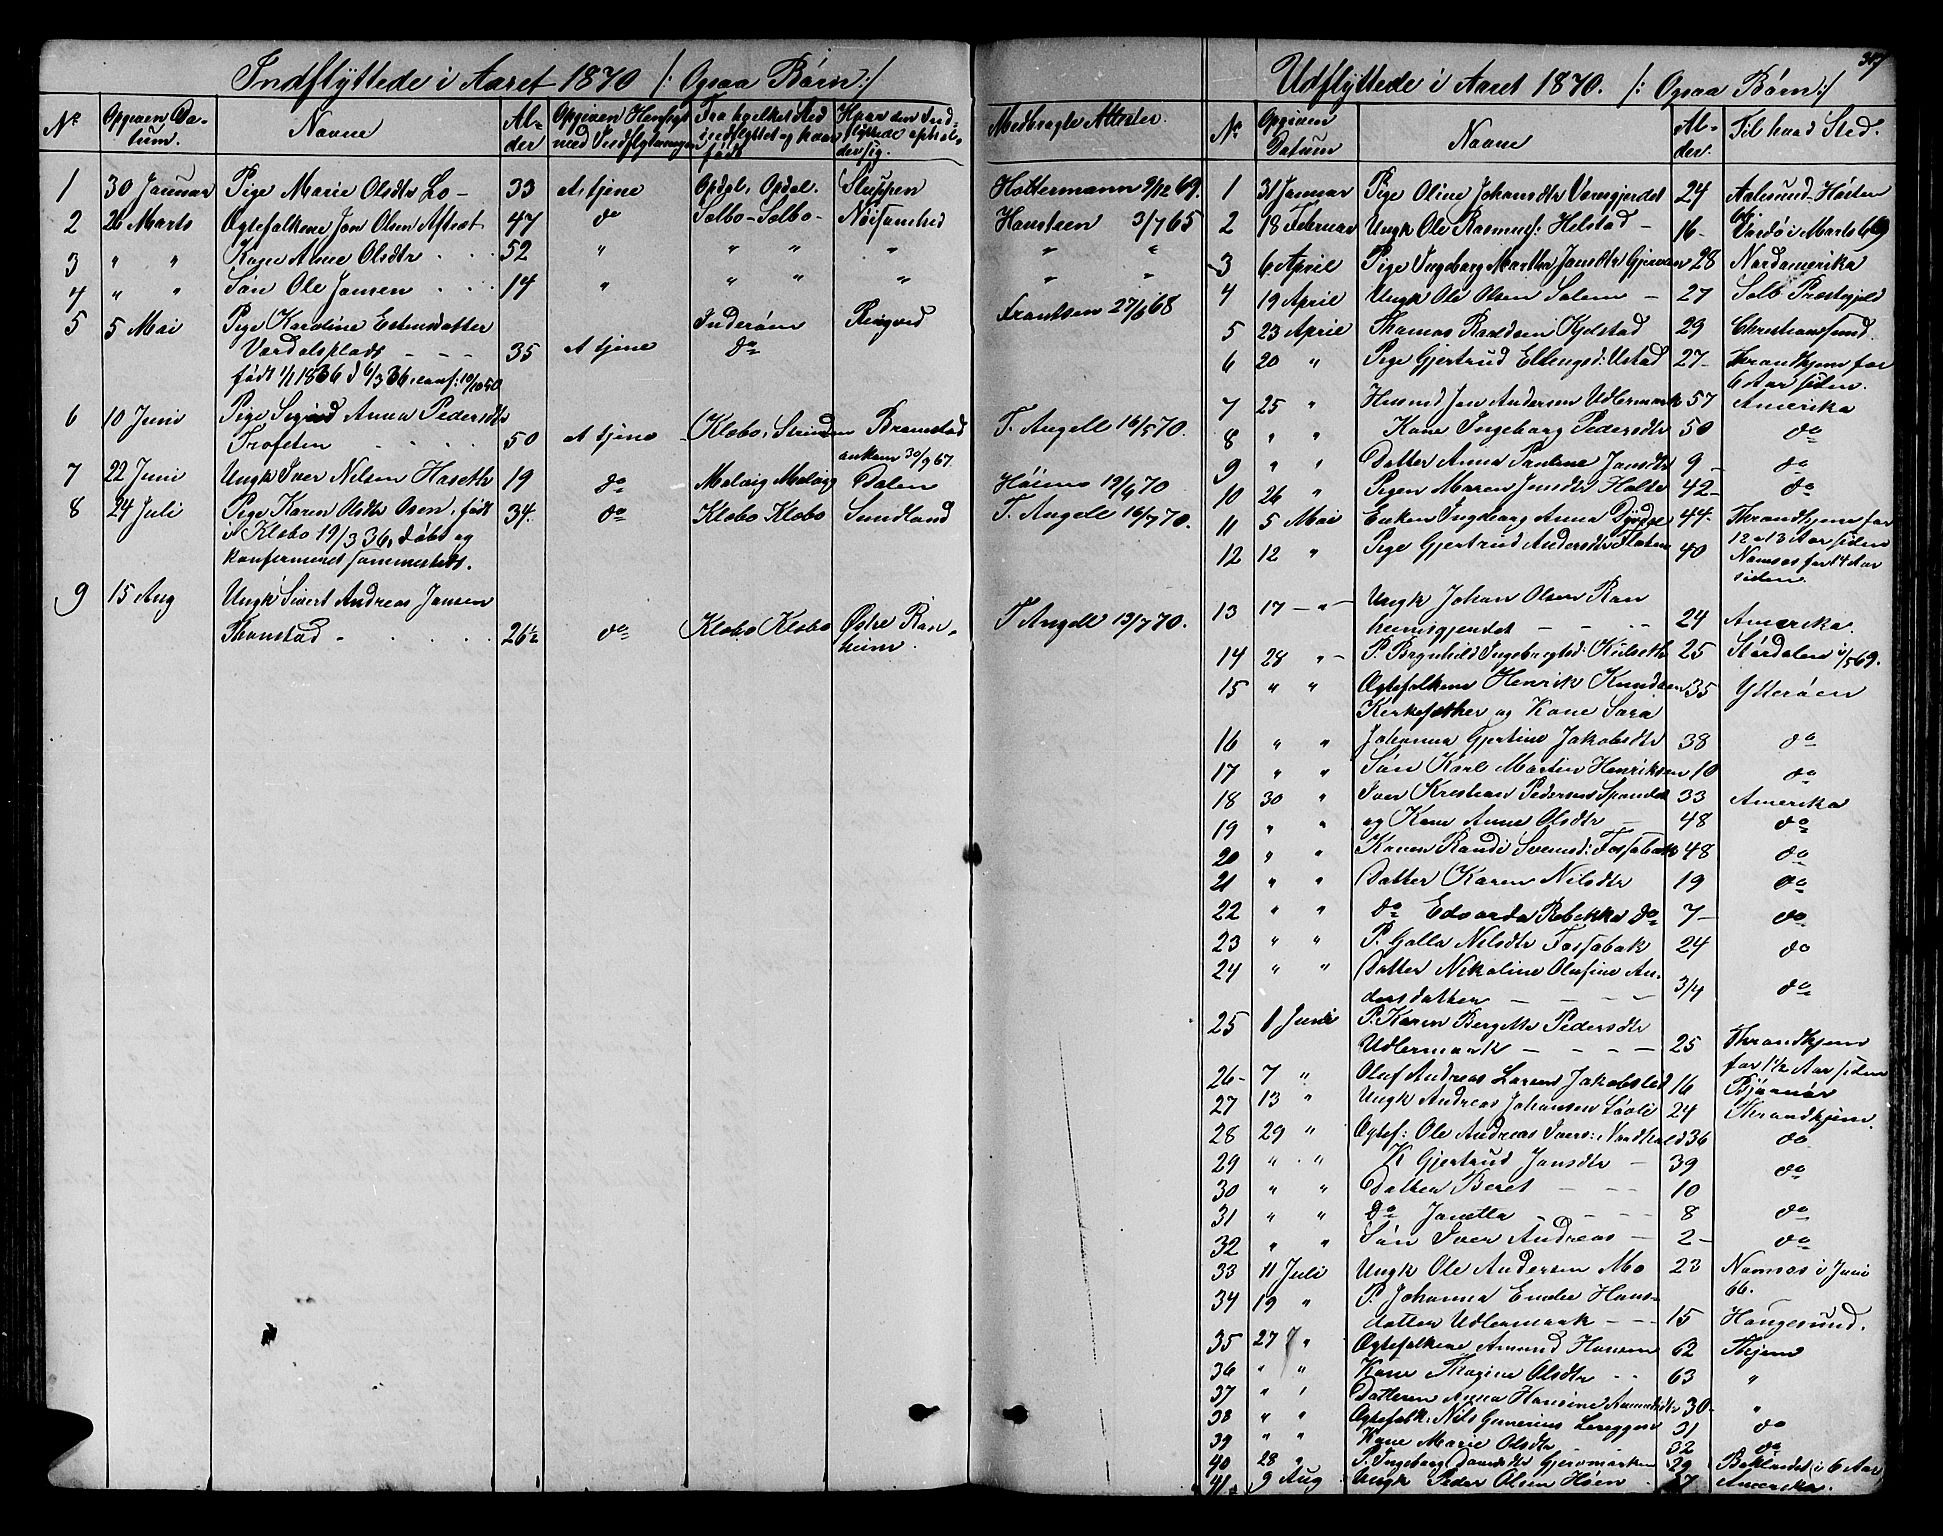 Indflyttede i Aaret 1870 /: Ogsaa Børn :/
Nº | Opgiven Datum. | Navne | Alder | Opgiven Hensigt med Indflytningen | Fra hvilket Sted indflyttet og hvor født | Hvor den Indflyttede opholder sig. | Medbragte Attester.
1 | 30 Januar | Pige Marie Olsdtr Lo - | 33 | At tjene | Opdal, Opdal. | Sluppen | Hattermann 9/12 69.
2 | 26 Marts | Ægtefolkene Jon Olsen Aftrøt | 47 | do | Sælbo - Sælbo - | Nøisomhed | Hansteen 3/7 65
3 | " " | Kone Anne Olsdtr | 52 | " | " " | " | " "
4 | " " | Søn Ole Jonsen | 14 | " | " " | "
5 | 5 Mai | Pige Karoline Estensdatter | Inderøen | Ringved | Frantsen 27/6 68
Værdalsplads | 35 | At tjene | do
født 1/1 1836 d 6/3 36, conf: 10/10 50
6 | 10 Juni | Pige Anna Pedersdtr
Trofeten | 50 | At tjene | Klæbo, Strinden | Bromstad | T. Angell 16/5 70.
ankom 30/9 67.
7 | 22 Juni | Ungk Iver Nilsen Haseth | 19 | do | Malvig Malvig | Dalen | 19/4 70
8 | 24 Juli | Pige Karen Olsdtr Osen, født | 34. | do | Klæbo Klæbo | Sundland | T. Angell 16/7 70.
i Klæbo 19/3 36, døbt og
konfirmeret sammesteds.
9 | 15 Aug | Ungk Sivert Andreas Jonsen
Thonstad - | 26½ | do | Klæbo Klæbo | Østre Ranheim. | T Angell 13/7 70.
Udflyttede i Aaret 1870. /: Ogsaa Børn :/
Nº | Opgiven Datum | Navne | Alder. | Til hvad Sted.
1 | 31 Januar | Pige Oline Johansdtr | 24 | Aalesund - Høsten 66.
2 | 18 Februar | Ungk Ole Rasmus: Helstad - | 16 - | Vardø i Marts 69
3 | 6 April | Pige Ingeborg Martha Jonsdtr | 28 | Nordamerika
4 | 19 April | Ungk Ole Olsen Salem - | 27 | Sælb Præstegjeld
5 | 23 April | Thomas | 29 | Christianssund.
6 | 20 " | Pige Gjertrud Ellingsd: Ustad | 27 - | Throndhjem for
6 Aar siden.
7 | 25 " | Husmd Jon Andersen Udlermark | 57 | Amerika
8 | " " | Kone Ingeborg Pedersdtr | 50 | do
9 | " " | Datter Anna Pauline Jonsdtr | 9 - | do
10 | 26 " | Pigen Maren Jonsdtr Holte | 42 - | do
11 | 5 Mai | Enken Ingeborg Anna | 44 - | Throndhjem for
12 a 13 Aar siden
12 | 12 " | Pige Gjertrud Andersdtr Floten | 40 | Namsos for 14 Aar
siden.
13 | 17 - " - | Ungk Johan Olsen Ran
heimsgjerdet - - - | 24 | Amerika.
14 | 28 " - | P. Brynhild Ingebrigtsd: | 25 | Størdalen 1/5 69.
15 | " " | Ægtefolkene Henrik Knudsen | 35 | Ytterøen
Kirkesæther og Kone Sara
16 | " " | Johanna Gjertine Jakobsdtr | 38 | do
17 | " " | Søn Karl Martin Henriksen | 10 | do
18 | 30 " | Iver Kristian Pedersen | 33 | Amerika
19 | " " | og Kone Anne Olsdtr - | 48 | do
20 | " " | Konen Randi Svensd: Fossebak | 48 | do
21 | " " | Datter Karen Nilsdtr | 19 | do
22 | " " | do Edvarda Rebekka do | 7 - | do
23 | " " | P. Golla Nilsdtr Fossebak | 24 | do
24 | " " | Datter Nikoline Olufine An-
dersdatter - - - - | 3/4 | do
25 | 1 Juni | P. Karen Bergitte Pedersdtr
Udlermark - - - - | 25 | Throndhjem
for 1½ Aar siden
26 - | 7 " | Oluf Andreas Larsen Jakobsled | 16 | Bjørnør
27 | 13 " | Ungk Andreas Johansen | 24 | Throndhjem.
28 | 29 " | Ægtef: Ole Andreas Ivers: | 36 | do
29 | " " | K Gjertrud Jonsdtr - | 39 | do
30 | " " | Datter Beret - - - | 10
31 | " " | do Jonetta - - - | 8 | do
32 | " " | Søn Iver Andreas - | 2 - | do
33 | 11 Juli | Ungk Ole Andersen Mo | 23 | Namsos i Juni
66.
34 | 19 " | P. Johanna Emelie Hans-
datter Udlermark - - - | 15 | Haugesund.
35 | 27 " | Ægtefolkene Amund Hansen | 62 | Thjem
36 | " " | Kone Olsdtr - - | 63 | "
37 | " " | Datteren Anna Hansine Amundsdtr | 30 - | "
38 | " " | Ægtefolk: Nils Gunerius Lereggen | 31 | do
39 | " " | Kone Marie Olsdtr | 32 | do
40 | 28 " | P. Ingeborg | 29 | Baklandet i 6 Aar
41 | 9 Aug | Ungk Peder Olsen Høien | Amerika.